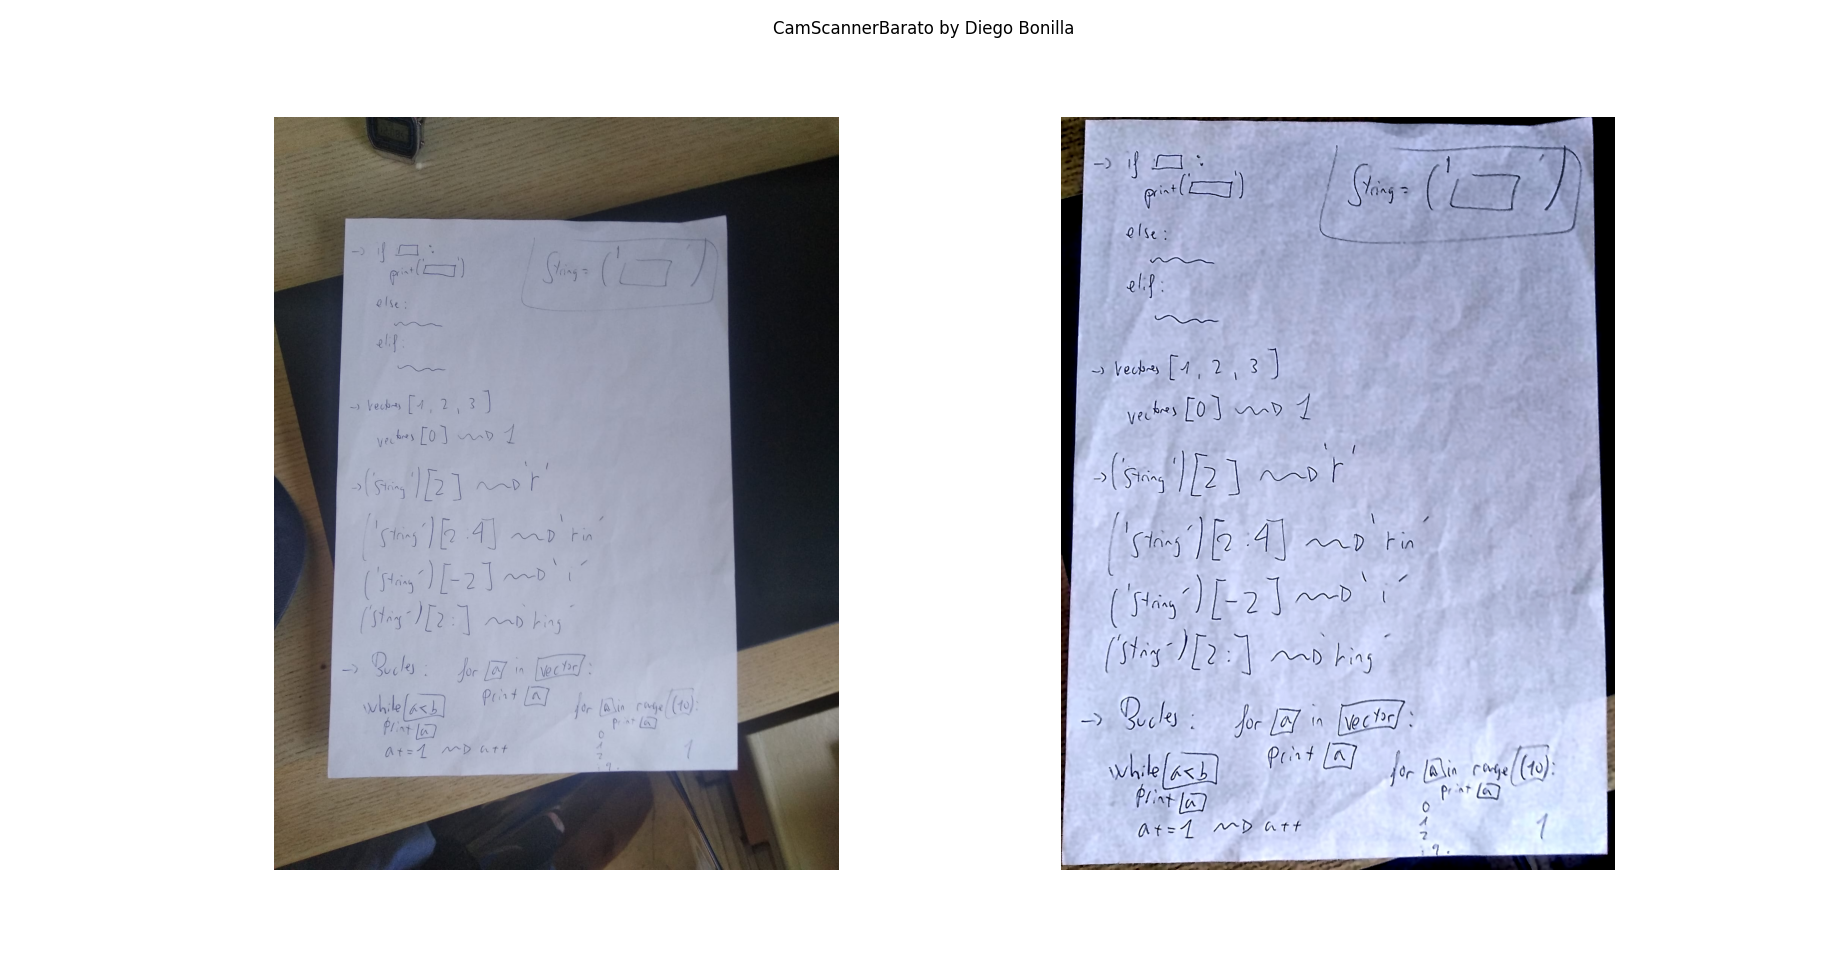 CamScannerBarato by Diego Bonilla
-> if :
print('')
else:
elif:
String = ('')
-> vectores [1, 2, 3]
vectores [0] 1
-> ('string')[2] 'r'
('string')[2:4] 'rin'
('string')[-2] 'i'
('string')[2:] 'ring'
-> Bucles: for a in vector:
print a
while a<b
print a
a+=1 a++
for a in range (10):
print a
0
1
2
: 9.
1
-> if :
print('')
else:
elif:
String = ('')
-> vectores [1, 2, 3]
vectores [0] 1
-> ('string')[2] 'r'
('string')[2:4] 'rin'
('string')[-2] 'i'
('string')[2:] 'ring'
-> Bucles: for a in vector:
print a
while a<b
print a
a+=1 a++
for a in range (10):
print a
0
1
2
: 9.
1